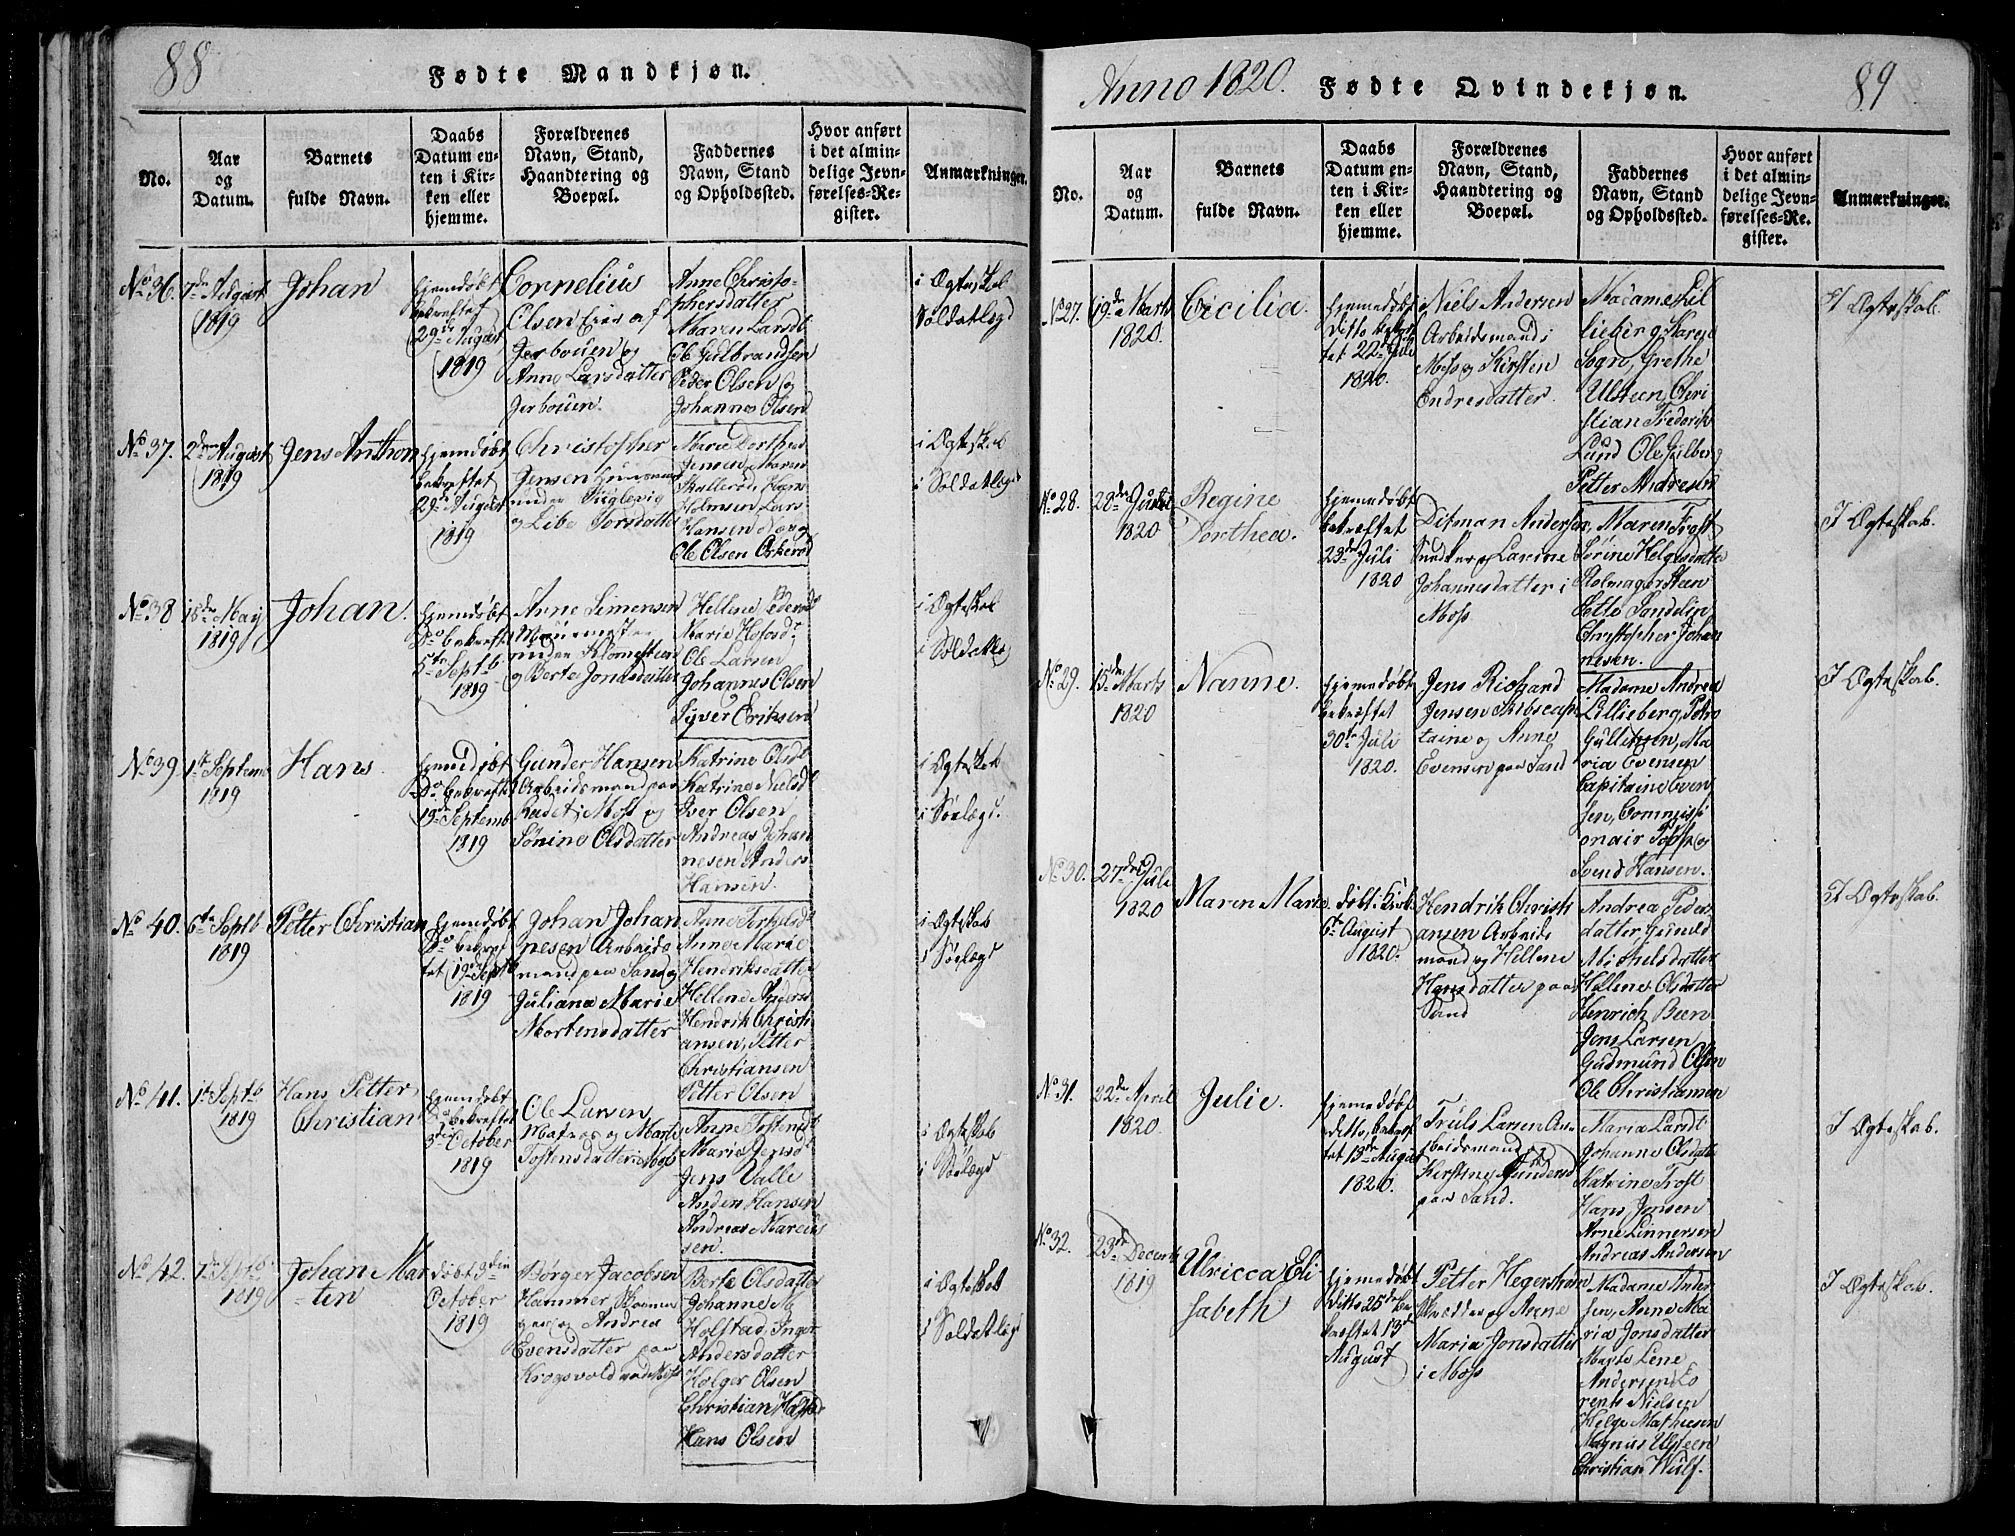 88
Fødte Mandkjøn.
No.
Aar
og
Datum.
Barnets
fulde Navn.
Daabs
Datum en-
ten i Kir-
ken eller
hjemme.
Forældrenes
Navn, Stand,
Haandtering og
Boepæl.
Faddernes
Navn, Stand
og Opholdssted.
Hvor anført
i det almin-
delige Jevn-
førelses-Re-
gister.
Anmærkninger.
No 36.
7de August
1819
Johan
hjemdøbt
bekræftet
29de August
1819
Cornelius
Olsen Eier af
Jerbouen og
Anne Larsdatter
Jerbouen.
Anne Christo-
phersdatter
Maren Larsdt
Ole Gulbrandsen
Peder Olsen og
Johannes Olsen
i Ægteskab
Soldatlægd
No 37.
2den August
1819
Jens Anthon
hjemdøbt
bekræftet
29de August
1819
Christopher
Jensen Huusmand
under
og Libe Torsdatter
Marie Dorthea
Jensen Maren
Skallerød Hans
Holmsen Lars
Hansen
Ole Olsen
i Ægteskab
i Soldatlægd
No 38
18de May
1819
Johan.
hjemdøbt
Do bekræftet
5te Septb
1819
Arne Simensen
Muurmester
under
og Berte Jonasdatter
Hellene Pedersdt
Marie
Ole Larsen
Johannes Olsen
Syver Eriksen
i Ægteskab
i Soldatlægd
No 39.
1te Septemb
1819
Hans
hjemdøbt
Do bekræftet
19de Septemb
1819
Gunder Hansen
Arbeidsmand paa
i Moss og
Sørine Olsdatter
Katrine Olsdt
Katrine Nielsdt
Iver Olsen
Andreas Johan
nesen Anders
Hansen.
i Ægteskab
i Søelægd.
No 40.
6te Septb
1819
Petter Christian
hjemdøbt
Do bekræf
tet 19de Septb
1819
Johan Johan
nesen Arbeids
mand paa Sand og
Juliana Marie
Mortensdatter
Anne Torkelsdt
Anne Marie
Hendriksdatter
Hellene Andersd
Hendrik Christi
ansen, Petter
Christiansen
Petter Olsen
i Ægteskab
i Søelægd
No 41.
1te Septb
1819
Hans Petter
Christian
hjemdøbt
Do bekræftet
3die October
1819
Ole Larsen
Matros og Marte
Tostensdatter i Moss
Anne Tostensdt
Maria Jensdt
Jens Valle
Anden Hansen
Andreas Marcus
sen.
i Ægteskab
i Søelægd
No 42.
7de Septb
1819
Johan Mar
ten
døbt 3die
October
1819
Børger Jacobsen
Hammer
og Andrea
Evensdatter paa
Krogsvold ved Moss
Berte Olsdatter
Johanne M
Holstad, Inger
Andersdatter
Holger Olsen
Christian
Hans Olsen
i Ægteskab
i Soldatlægd
Anno 1820.
Fødte Qvindekjøn.
89
No.
Aar
og
Datum.
Barnets
fulde Navn.
Daabs
Datum en-
ten i Kir-
ken eller
hjemme.
Forældrenes
Navn, Stand,
Haandtering og
Boepæl.
Faddernes
Navn, Stand
og Opholdssted.
Hvor anført
i det almin-
delige Jevn-
førelses-Re-
gister.
Anmærkninger.
No 27.
19de Marts
1820.
Cicilia.
hjemmedøbt
ditto bekræf
tet 22de Juli
1820.
Niels Andersen
Arbeidsmand i
Moss og Kirsten
Endresdatter.
Madame Lil
lieberg, Karen
Sogn, Grethe
Ulsteen, Chri
stian Frederik
Lund Ole Gulberg
Petter Andresen
I Ægteskab.
No 28.
1820
Regine
Dorthea.
hjemmedøbt
bekræftet
23de Juli
1820
Ditman Andersen,
Snedker og Lavine
Johannesdatter i
Moss.
Maren Trost
Sørine Helgesdatter
Stolmager Steen
Sette Sandelin
Christopher Johan
nesen.
I Ægteskab.
No 29.
15de Marts
1820
Nanne.
hjemmedøbt
bekræftet
30te Juli
1820.
Jens Richard
Jensen Skibscap
taine og Anne
Evensen paa Sand
Madame Andrea
Lillieberg, Petro
Gullixsen, Ma
ria Evensen
Capitaine Even
sen, Commissi
onair og
Svend Hansen.
I Ægteskab.
No 30.
27de Juli
1820
Maren Marie.
døbt i Kirk
6te August
1820.
Hendrik Christi
ansen Arbeids
mand og Hellene
Hansdatter paa
Sand
Andrea Peders
datter, Gunild
Michelsdatter
Hellene Olsdatter
Henrich Been
Jens Larsen
Gudmund Olsen
Ole Christiansen
I Ægteskab.
No 31.
22de April
1820.
Julie.
hjemmedøbt
ditto, bekræf
tet 13de August
1820.
Truls Larsen Ar
beidsmand
Kirstine Gundersd
paa Sand.
Maria Larsdt
Johanne Olsdatter
Katrine Trost
Hans Jensen
Arne Linnersen
Andreas Andersen
I Ægteskab.
No 32.
23de Decemb
1819
Ulricca Eli
sabeth
hjemmedøbt
ditto 25de be
kræftet 13de
August
Petter Hegersham
Skrædder og Anne
Maria Jonsdatter
i Moss
Madame Ander
sen, Anne Ma
ria Jonsdatter
Marte Lene
Andersen Lo
rents Nielsen
Helge Mathiesen
Magnus Ulsteen
Christian Wulf.
I Ægteskab.